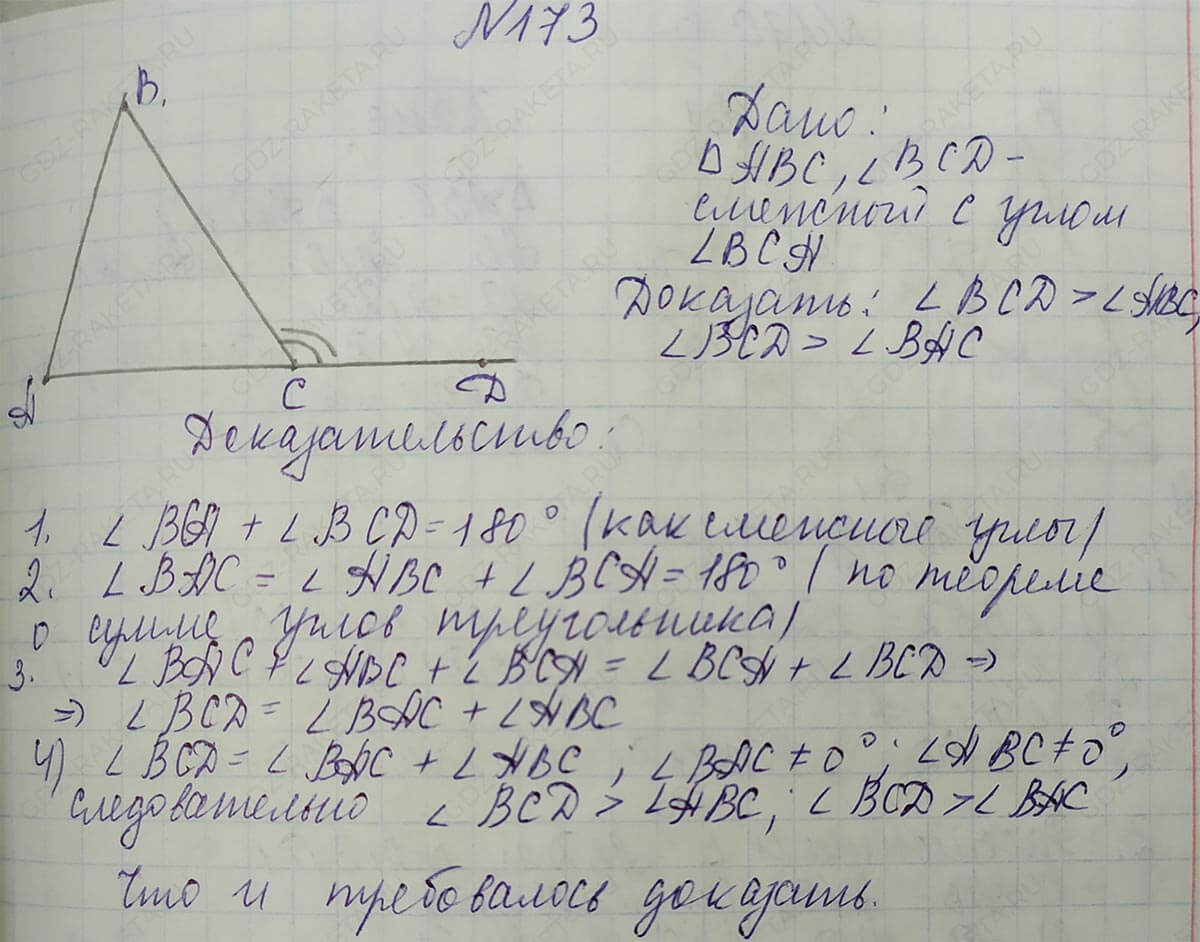 №173
B.
A
C
D
Дано:
△ABC, ∠BCD -
смежный с углом
∠BCA
Доказать: ∠BCD > ∠ABC,
∠BCD > ∠BAC
Доказательство:
1. ∠BCA + ∠BCD = 180° (как смежные углы)
2. ∠BAC = ∠ABC + ∠BCA = 180° (по теореме
о сумме углов треугольника)
3. ∠BAC + ∠ABC + ∠BCA = ∠BCA + ∠BCD ⇒
⇒ ∠BCD = ∠BAC + ∠ABC
4) ∠BCD = ∠BAC + ∠ABC ; ∠BAC ≠ 0° ; ∠ABC ≠ 0°,
следовательно ∠BCD > ∠ABC; ∠BCD > ∠BAC
Что и требовалось доказать.
GDZ-RAKETA.RU